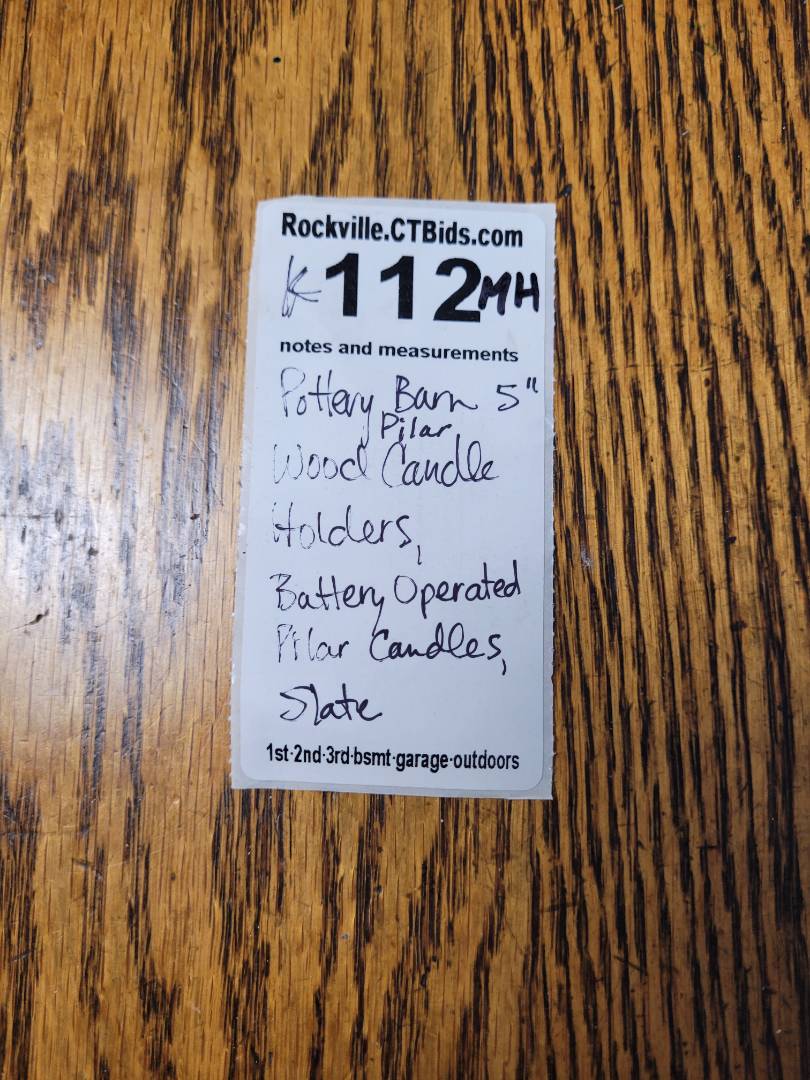 Rockville.CTBids.com
K112MH
notes and measurements
Pottery Barn 5"
Pilar
Wood Candle
Holders,
Battery Operated
Pilar Candles,
Slate
1st·2nd·3rd·bsmt·garage·outdoors